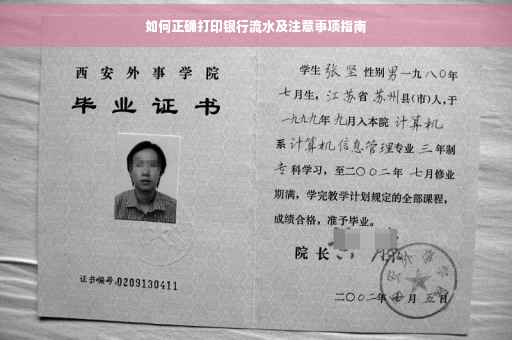 如何正确打印银行流水及注意事项指南
西安外事学院
毕业证书
证书编号:0209130411
学生 张坚 性别 男 一九八〇年
七月生, 江苏省 苏州县(市)人,于
一九九九年 九月入本院 计算机
系 计算机信息管理专业 三 年制
专科学习,至二〇〇二年 七月修业
期满,学完教学计划规定的全部课程,
成绩合格,准予毕业。
院长
二〇〇二年 月 五日